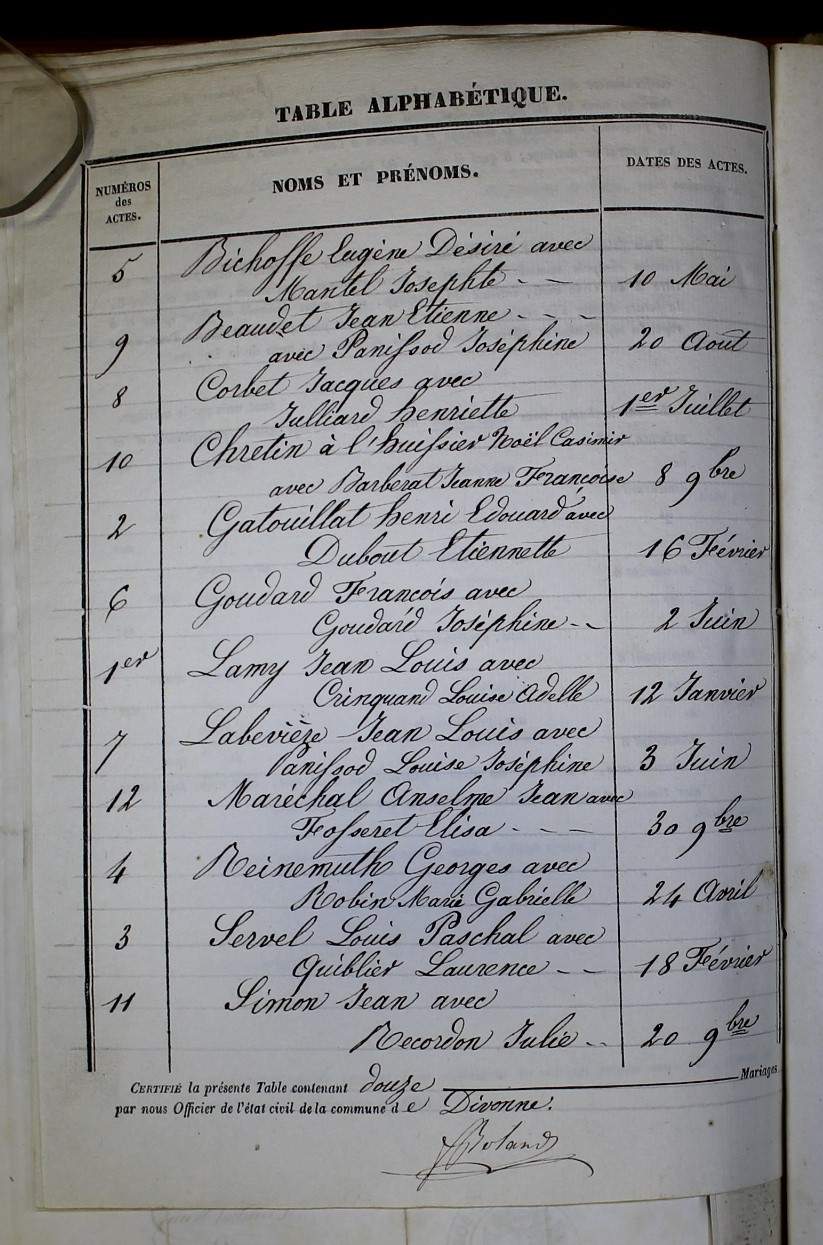 TABLE ALPHABÉTIQUE.
NUMÉROS des ACTES. NOMS ET PRÉNOMS. DATES DES ACTES.
5 Bichoffe Eugène Désiré avec
Mantel Josephte - — 10 Mai
Beaudet Jean Etienne - - -
9 avec Panissod Joséphine 20 Août
8 Corbet Jacques avec
Julliard henriette 1er Juillet
10 Chretin à l'huissier Noël Casimir
avec Barberat Jeanne Françoise 8 9bre
2 Gatouillat henri Edouard avec
Dubout Etiennette 16 Février
6 Goudard François avec
Goudard Joséphine - - 2 Juin
1er Lamy Jean Louis avec
Crinquand Louise Adelle 12 Janvier
7 Labevièze Jean Louis avec
Panissod Louise Joséphine 3 Juin
12 Maréchal Anselme Jean avec
Fosseret Elisa - — - 30 9bre
4 Reinemuth Georges avec
Robin Marie Gabrielle 24 Avril
3 Servel Louis Paschal avec
Quiblier Laurence - - 18 Février
11 Simon Jean avec
Recordon Julie - - 20 9bre
CERTIFIÉ la présente Table contenant douze Mariages
par nous Officier de l'état civil de la commune de Divonne.
Roland